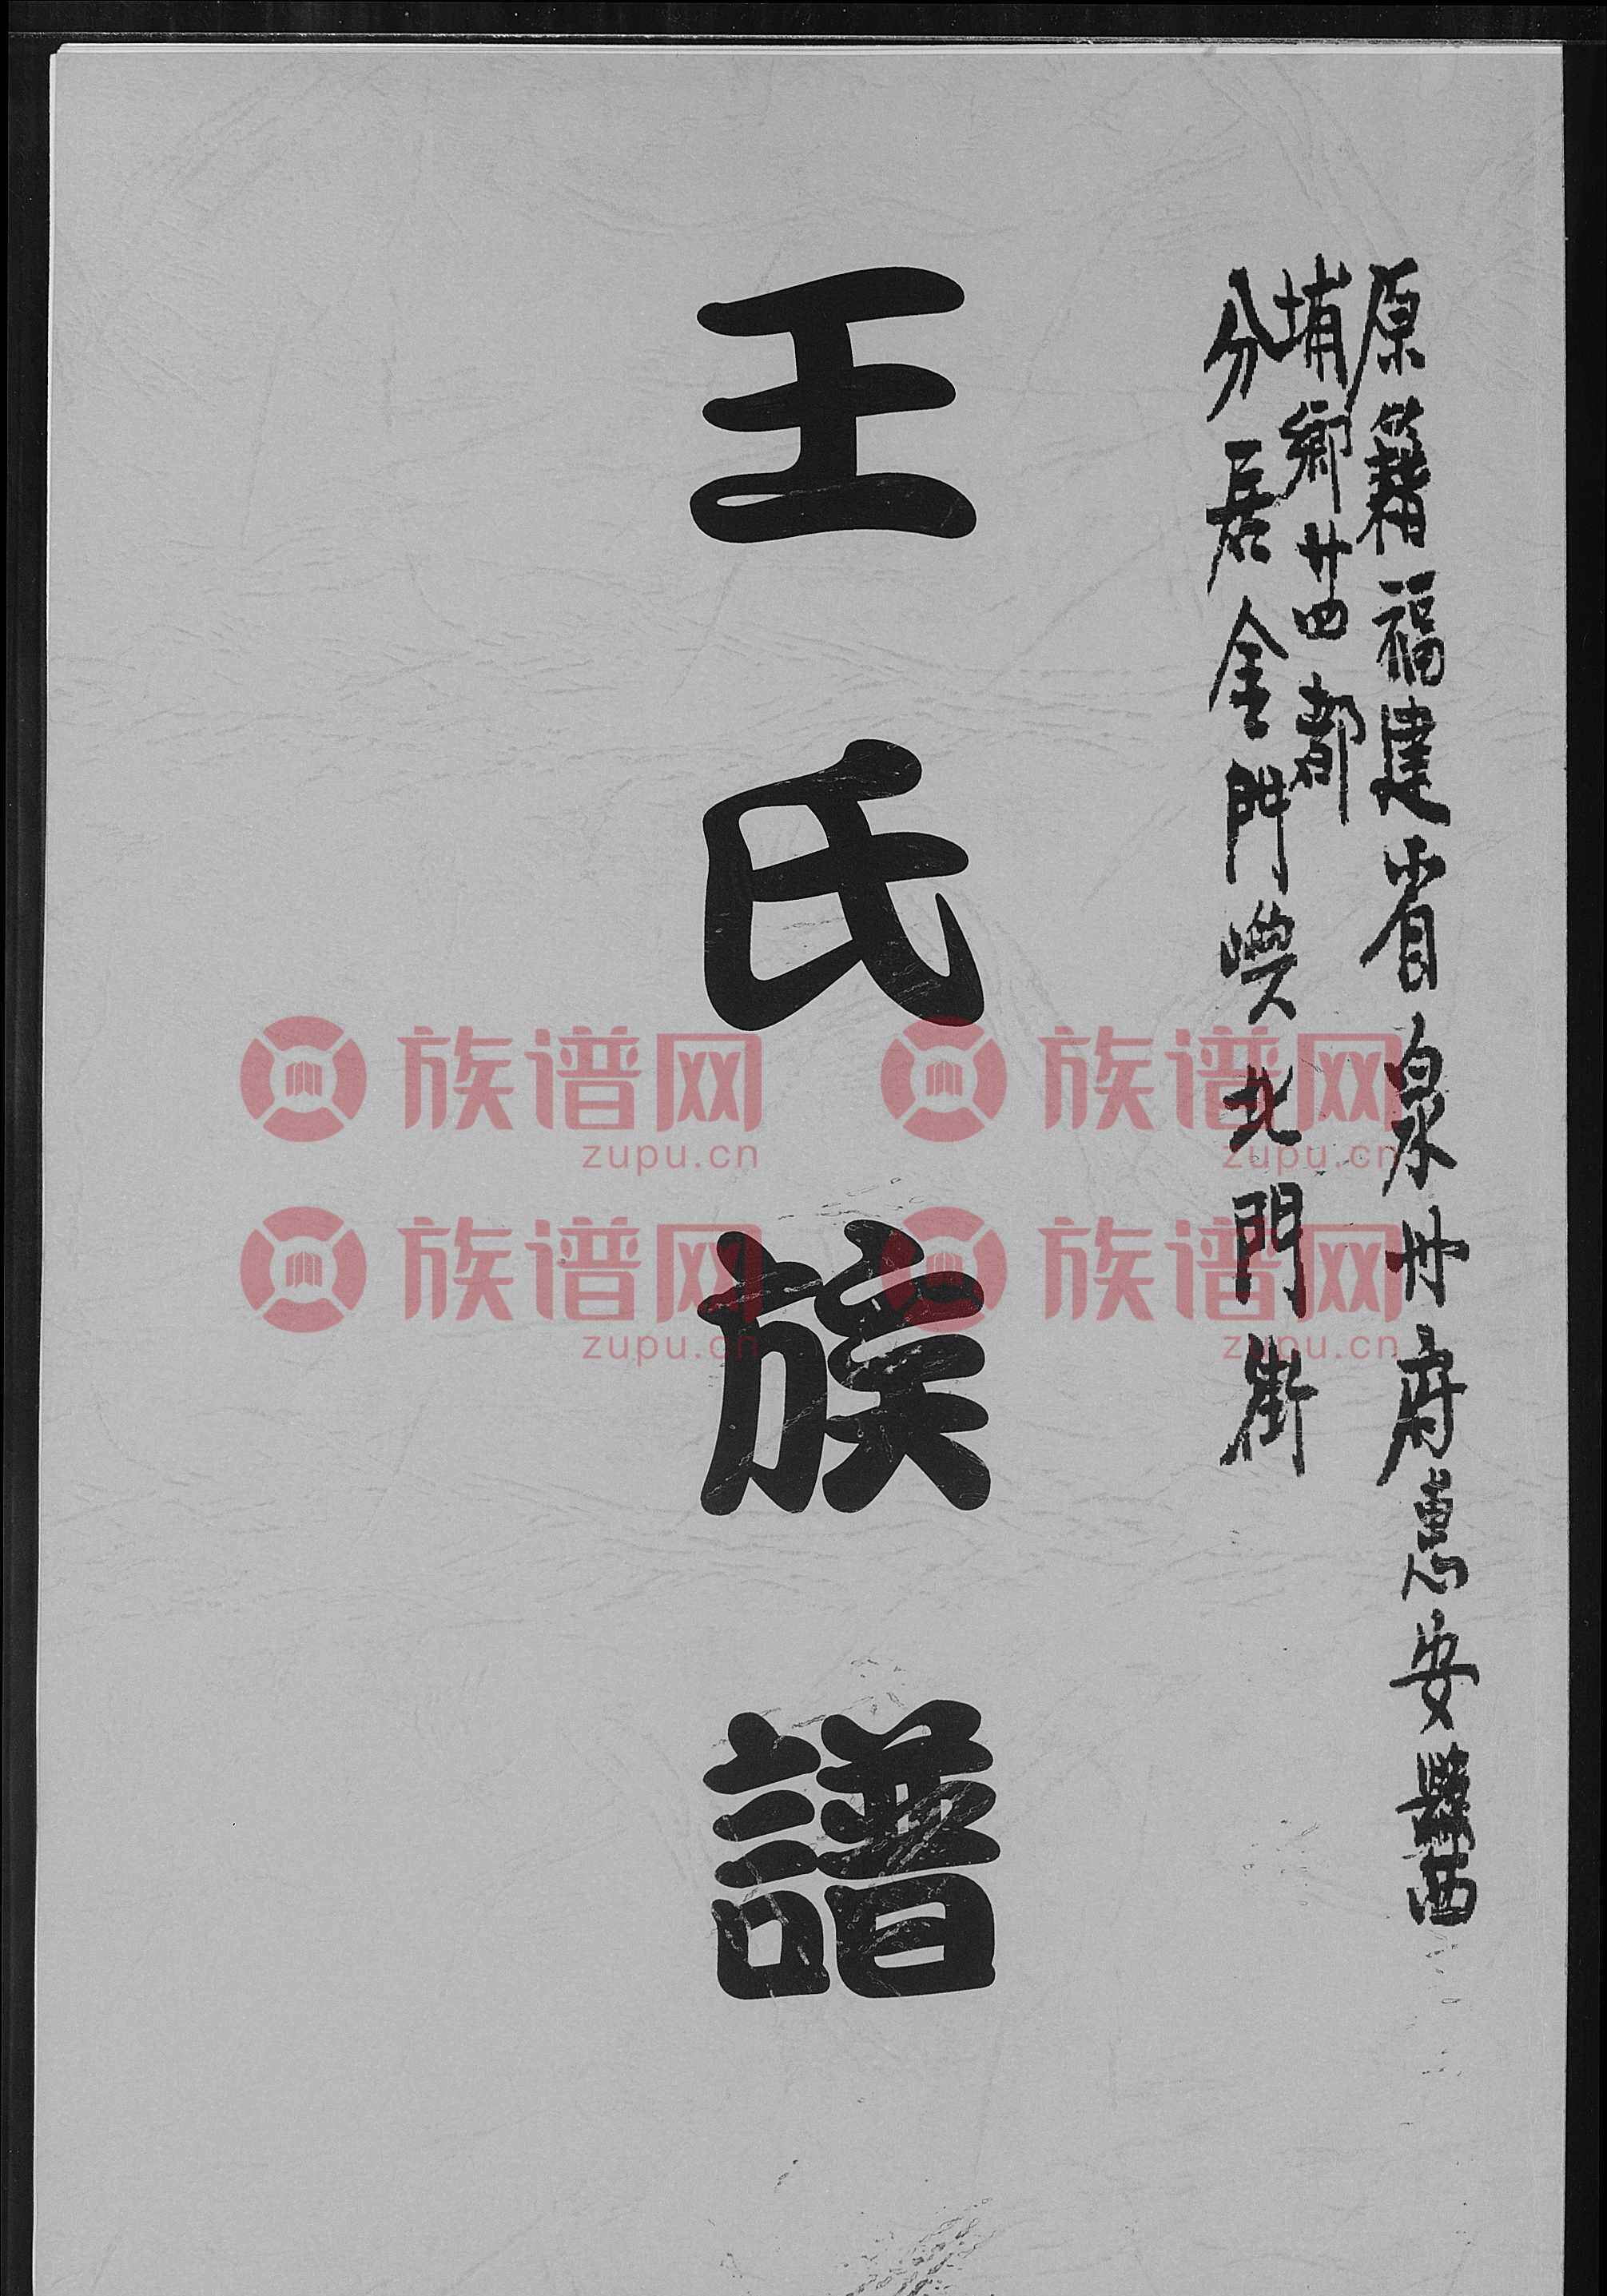 原籍福建省泉州府惠安縣西
埔鄉廿四都
分居金門嶼北門街
王氏族譜
族谱网 族谱网
zupu.cn zupu.cn
族谱网 族谱网
zupu.cn zupu.cn